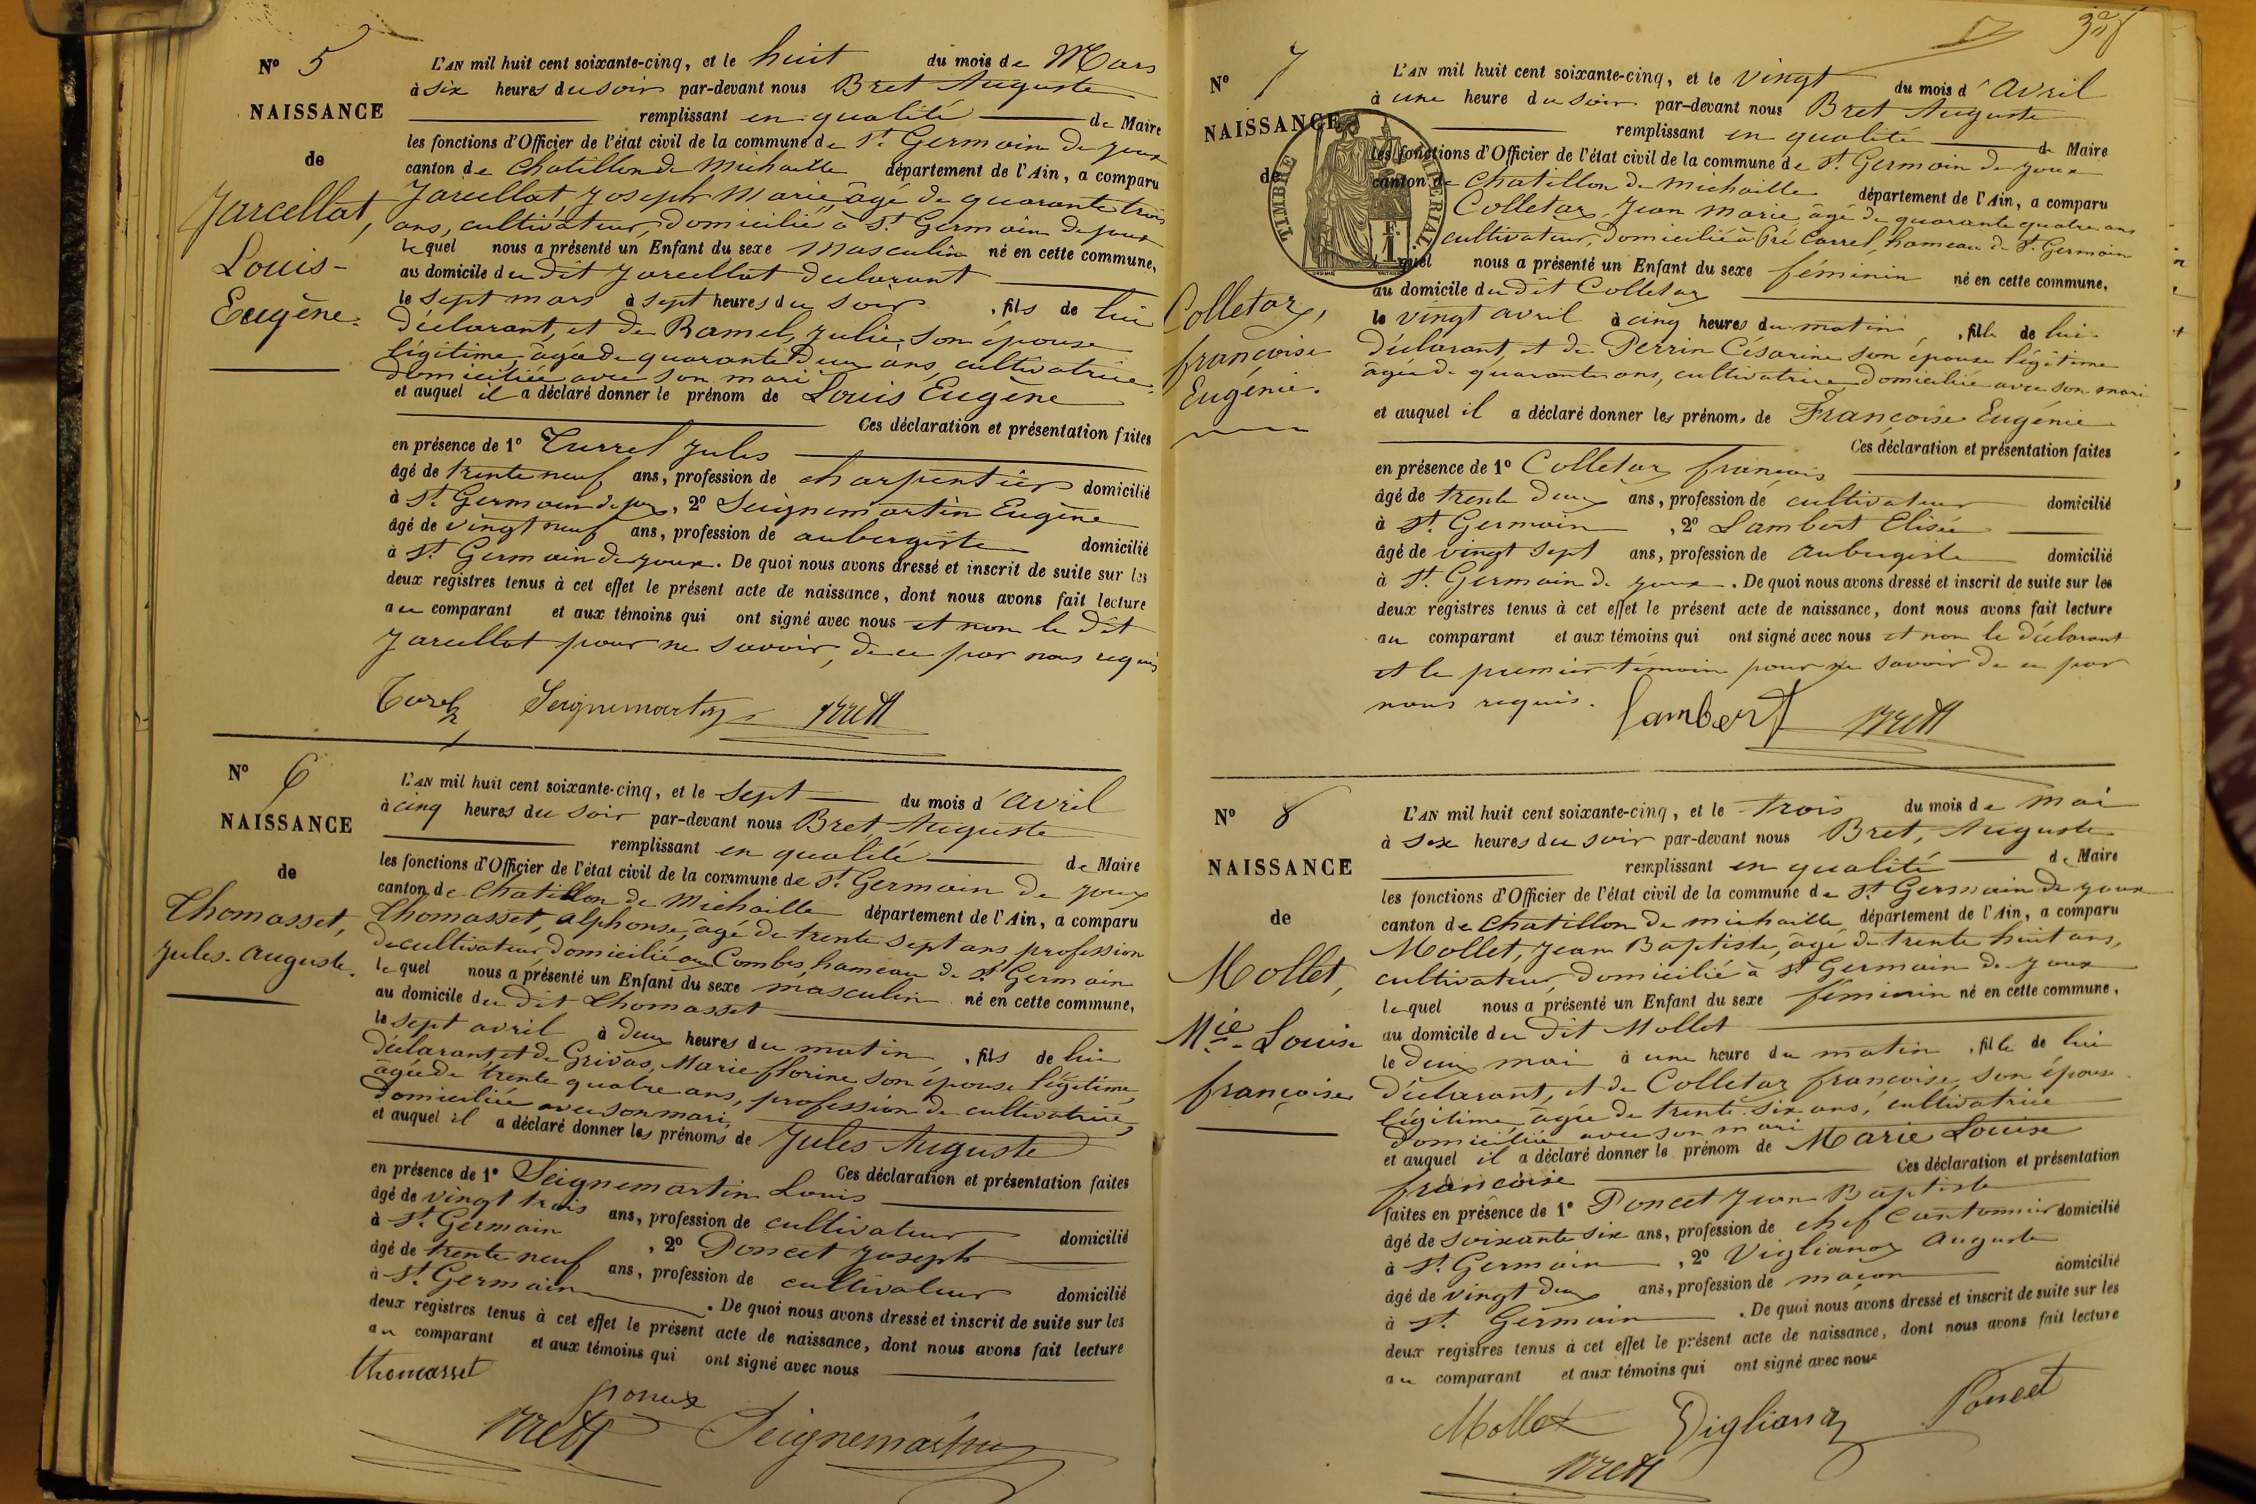 N° 5
NAISSANCE
de
Jarcellat,
Louis-
Eugène.
L'AN mil huit cent soixante-cinq, et le huit du mois de Mars
à six heures du soir par-devant nous Bret Auguste
remplissant en qualité de Maire
les fonctions d'Officier de l'état civil de la commune de St. Germain de joux
canton de Chatillon de Michaille département de l'Ain, a comparu
Jarcellat, Joseph Marie, âgé de quarante trois
ans, cultivateur, domicilié à St. Germain de joux
lequel nous a présenté un Enfant du sexe masculin né en cette commune,
au domicile du dit Jarcellat declarant
le sept mars à sept heures du soir, fils de lui
déclarant, et de Ramel, Julie, son épouse
légitime, âgée de quarante deux ans, cultivatrice,
domiciliée avec son mari
et auquel il a déclaré donner le prénom de Louis Eugène
Ces déclaration et présentation faites
en présence de 1° Turrel Jules
âgé de trente neuf ans, profession de charpentier domicilié
à St. Germain de joux, 2° Seignemartin Eugène
âgé de vingt neuf ans, profession de aubergiste domicilié
à St. Germain de joux. De quoi nous avons dressé et inscrit de suite sur les
deux registres tenus à cet effet le présent acte de naissance, dont nous avons fait lecture
au comparant et aux témoins qui ont signé avec nous et non le dit
Jarcellat pour ne savoir, de ce par nous requis
Seignemartin Bret
N° 6
NAISSANCE
de
Thomasset,
Jules-Auguste.
L'AN mil huit cent soixante-cinq, et le sept du mois d'avril
à cinq heures du soir par-devant nous Bret, Auguste
remplissant en qualité de Maire
les fonctions d'Officier de l'état civil de la commune de St. Germain de joux
canton de Chatillon de Michaille département de l'Ain, a comparu
Thomasset, Alphonse, âgé de trente sept ans profession
de cultivateur, domicilié au Combes, hameau de St. Germain
lequel nous a présenté un Enfant du sexe masculin né en cette commune,
au domicile du dit Thomasset
le sept avril à deux heures du matin, fils de lui
déclarant et de Grivas, Marie florine son épouse légitime,
âgée de trente quatre ans, profession de cultivatrice,
domiciliée avec son mari,
et auquel il a déclaré donner les prénoms de Jules Auguste
Ces déclaration et présentation faites
en présence de 1° Seignemartin Louis
âgé de vingt trois ans, profession de cultivateur domicilié
à St. Germain, 2° Poncet Joseph
âgé de trente neuf ans, profession de cultivateur domicilié
à St. Germain. De quoi nous avons dressé et inscrit de suite sur les
deux registres tenus à cet effet le présent acte de naissance, dont nous avons fait lecture
au comparant et aux témoins qui ont signé avec nous
thomasset
Bret Seignemartin
N° 7
NAISSANCE
de
TIMBRE IMPERIAL.
Colletaz,
françoise
Eugénie.
L'AN mil huit cent soixante-cinq, et le vingt du mois d'avril
à une heure du soir par-devant nous Bret Auguste
remplissant en qualité de Maire
les fonctions d'Officier de l'état civil de la commune de St. Germain de joux
canton de Chatillon de michaille département de l'Ain, a comparu
Colletaz, Jean Marie, âgé de quarante quatre ans
cultivateur, domicilié à Pré Carrel, hameau de St. Germain
lequel nous a présenté un Enfant du sexe féminin né en cette commune,
au domicile du dit Colletaz
le vingt avril à cinq heures du matin, fille de lui
déclarant, et de Perrin Césarine son épouse légitime
âgée de quarante ans, cultivatrice, domiciliée avec son mari
et auquel il a déclaré donner les prénoms de Françoise Eugénie
Ces déclaration et présentation faites
en présence de 1° Colletaz françois
âgé de trente deux ans, profession de cultivateur domicilié
à St. Germain, 2° Lambert Elisée
âgé de vingt sept ans, profession de aubergiste domicilié
à St. Germain de joux. De quoi nous avons dressé et inscrit de suite sur les
deux registres tenus à cet effet le présent acte de naissance, dont nous avons fait lecture
au comparant et aux témoins qui ont signé avec nous et non le déclarant
et le premier témoin pour ne savoir de ce par
nous requis. Lambert Bret
N° 8
NAISSANCE
de
Mollet,
Mie-Louise
françoise
L'AN mil huit cent soixante-cinq, et le trois du mois de mai
à six heures du soir par-devant nous Bret, Auguste
remplissant en qualité de Maire
les fonctions d'Officier de l'état civil de la commune de St. Germain de joux
canton de Chatillon de michaille, département de l'Ain, a comparu
Mollet, Jean Baptiste, âgé de trente huit ans,
cultivateur, domicilié à St Germain de Joux
lequel nous a présenté un Enfant du sexe féminin né en cette commune,
au domicile du dit Mollet
le deux mai à une heure du matin, fille de lui
déclarant, et de Colletaz françoise, son épouse
légitime, âgée de trente six ans, cultivatrice
domiciliée avec son mari
et auquel il a déclaré donner le prénom de Marie Louise
françoise Ces déclaration et présentation
faites en présence de 1° Poncet Jean Baptiste
âgé de soixante six ans, profession de chef Cantonnier domicilié
à St. Germain, 2° Viglianoz Auguste
âgé de vingt deux ans, profession de maçon domicilié
à St. Germain. De quoi nous avons dressé et inscrit de suite sur les
deux registres tenus à cet effet le présent acte de naissance, dont nous avons fait lecture
au comparant et aux témoins qui ont signé avec nous
Mollet Viglianoz Poncet
Bret